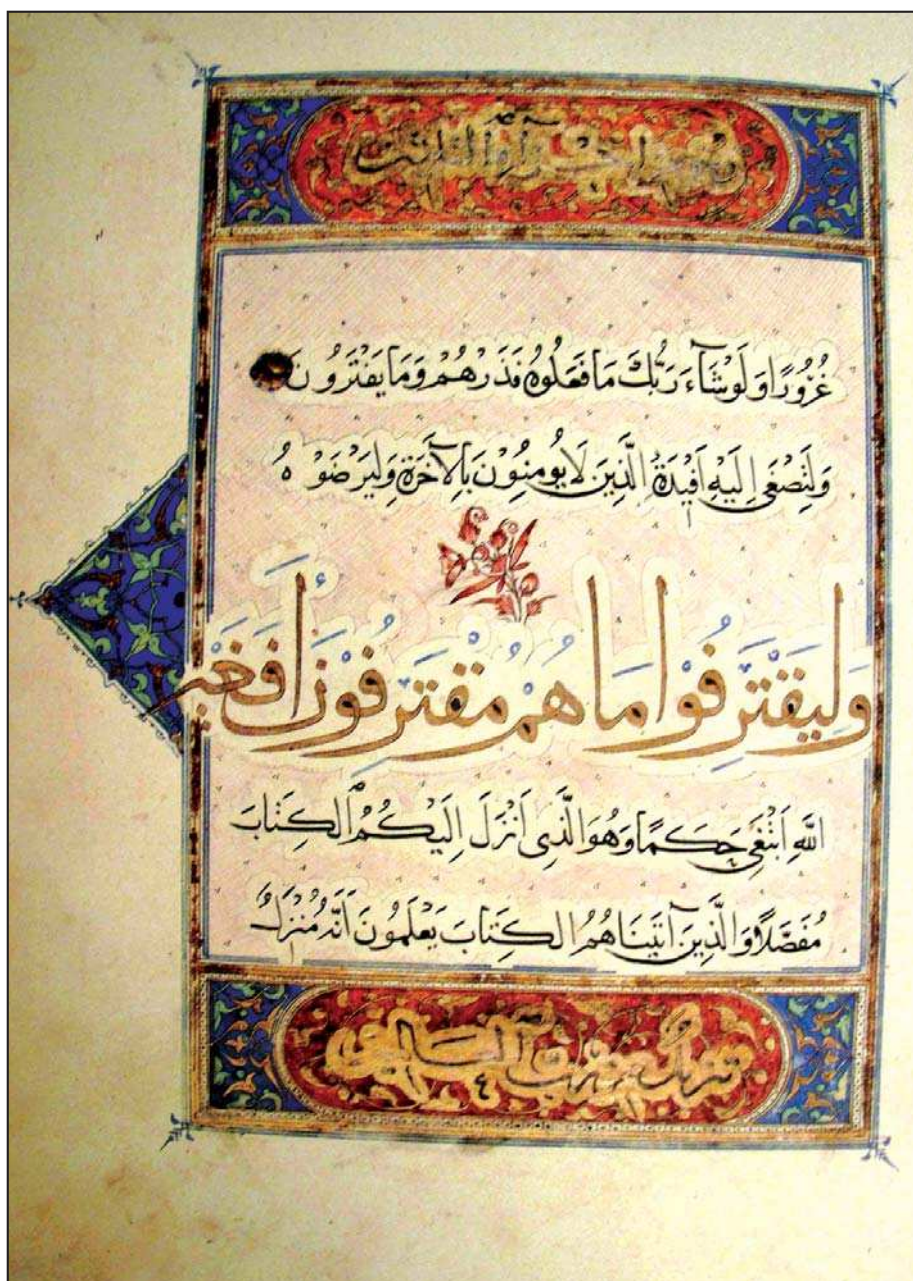 غُرُورًا وَلَوْ شَآءَ رَبُّكَ مَا فَعَلُوهُ فَذَرْهُمْ وَمَا يَفْتَرُونَ
وَلِتَصْغَى إِلَيْهِ أَفْئِدَةُ الَّذِينَ لَا يُومِنُونَ بِالْآخِرَةِ وَلِيَرْضَوْهُ
وَلِيَقْتَرِفُوا مَا هُمْ مُقْتَرِفُونَ أَفَغَيْرَ
اللَّهِ أَبْتَغِي حَكَمًا وَهُوَ الَّذِي أَنْزَلَ إِلَيْكُمُ الْكِتَابَ
مُفَصَّلًا وَالَّذِينَ آتَيْنَاهُمُ الْكِتَابَ يَعْلَمُونَ أَنَّهُ مُنَزَّلٌ
تنزيل من رب العالمين